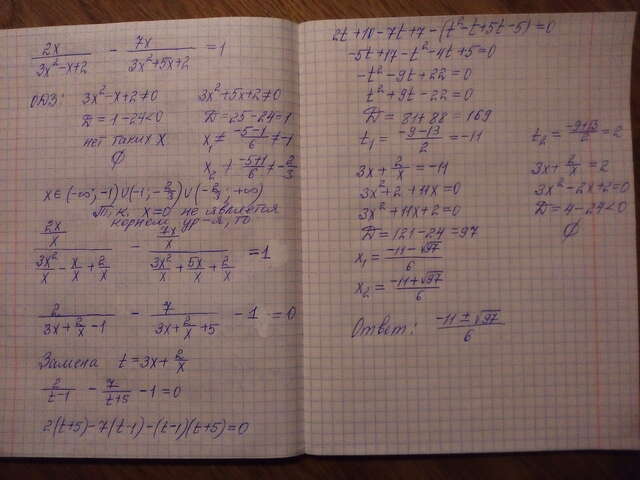 2x/(3x²-x+2) - 7x/(3x²+5x+2) = 1
ОДЗ: 3x²-x+2≠0 3x²+5x+2≠0
D = 1-24<0 D = 25-24=1
нет таких x x₁ ≠ (-5-1)/6 ≠ -1
∅ x₂ ≠ (-5+1)/6 ≠ -2/3
x∈(-∞; -1)∪(-1; -2/3)∪(-2/3; +∞)
Т.к. x=0 не является
корнем ур-я, то
(2x/x)/(3x²/x - x/x + 2/x) - (7x/x)/(3x²/x + 5x/x + 2/x) = 1
2/(3x+2/x-1) - 7/(3x+2/x+5) - 1 = 0
Замена t = 3x+2/x
2/(t-1) - 7/(t+5) - 1 = 0
2(t+5)-7(t-1)-(t-1)(t+5)=0
2t+10-7t+7-(t²-t+5t-5)=0
-5t+17-t²-4t+5=0
-t²-9t+22=0
t²+9t-22=0
D = 81+88=169
t₁ = (-9-13)/2 = -11 t₂ = (-9+13)/2 = 2
3x+2/x = -11 3x+2/x = 2
3x²+2+11x=0 3x²-2x+2=0
3x²+11x+2=0 D=4-24<0
D = 121-24=97 ∅
x₁ = (-11-√97)/6
x₂ = (-11+√97)/6
Ответ: (-11±√97)/6